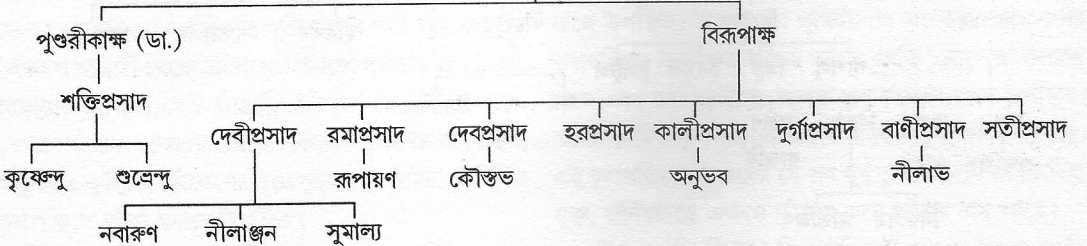 পুণ্ডরীকাক্ষ (ডা.) বিরূপাক্ষ
শক্তিপ্রসাদ
দেবীপ্রসাদ রমাপ্রসাদ দেবপ্রসাদ হরপ্রসাদ কালীপ্রসাদ দুর্গাপ্রসাদ বাণীপ্রসাদ সতীপ্রসাদ
কৃষ্ণেন্দু শুভ্রেন্দু রূপায়ণ কৌস্তভ অনুভব নীলাভ
নবারুণ নীলাঞ্জন সুমাল্য